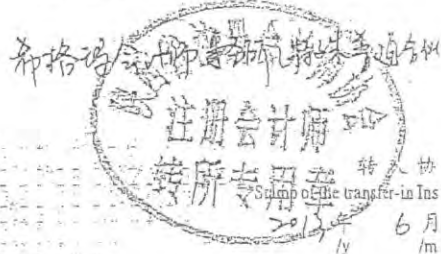 希格玛会计师事务所(特殊普通合伙
注册会计师
转所专用章
转 协
Stamp of the transfer-in Ins
2013年 6月
/y /m